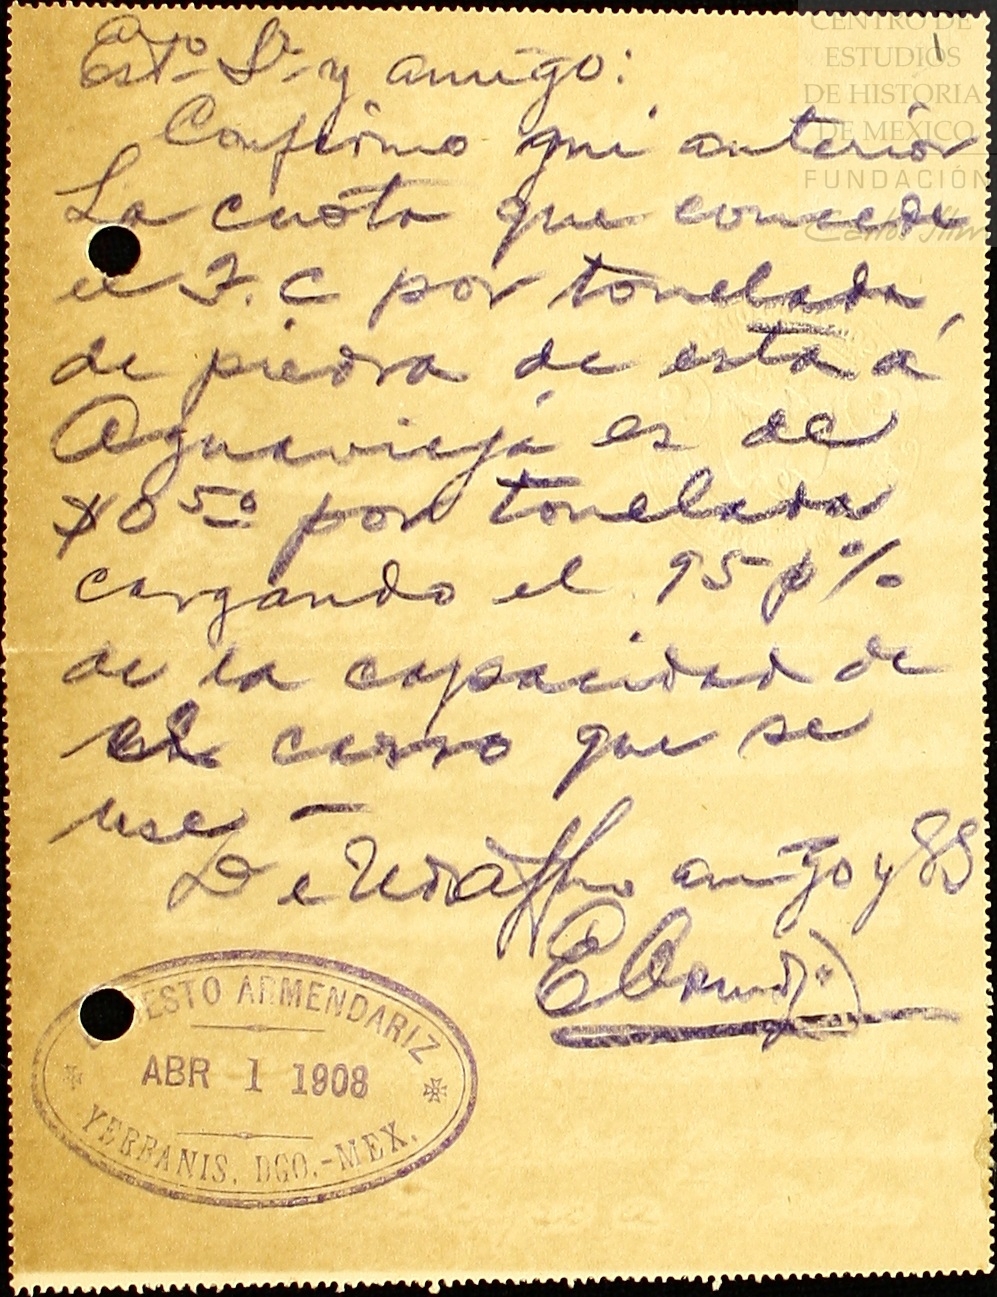 CENTRO DE
ESTUDIOS
DE HISTORIA
DE MÉXICO
FUNDACIÓN
Carlos Slim
1
Estº Sr y amigo:
Confirmo mi anterior
La cuota que concede
el F.C por tonelada,
de piedra de esta á
Aguavieja es de
$0 50 por tonelada
cargando el 95 p%
de la capacidad de
el carro que se
use —
De Ud Affmo amigo y SS
E Armdz
ESTO ARMENDARIZ
ABR 1 1908
YERBANIS, DGO.-MEX.